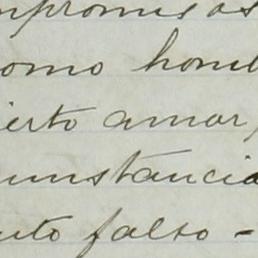 mpromisos
como homb
ierto amor,
cunstancia
uto falso -